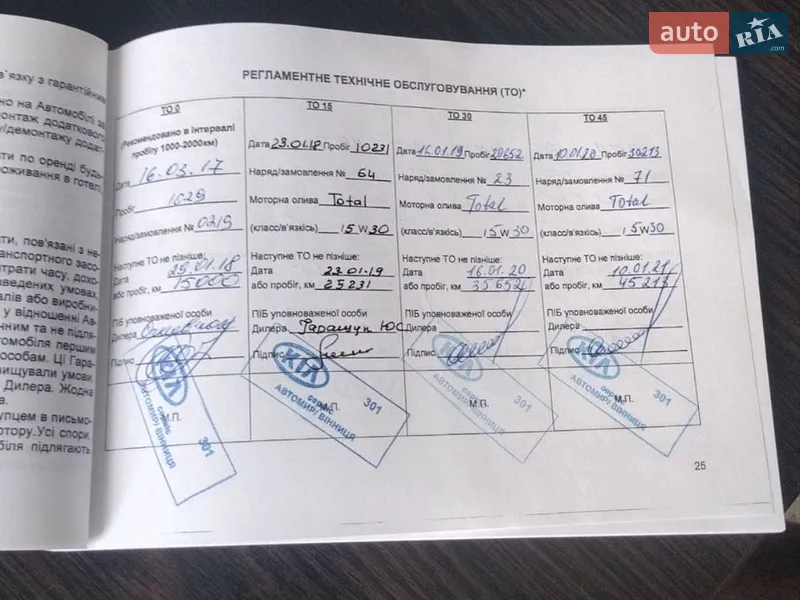 auto RIA .com
РЕГЛАМЕНТНЕ ТЕХНІЧНЕ ОБСЛУГОВУВАННЯ (ТО)*
в'язку з гарантійним
но на Автомобілі за
монтаж додаткового
у/демонтажу додат-
ати по оренді будь-
роживання в готелі,
ати, пов'язані з не-
транспортного засо-
трати часу, дохо-
ведених умовах,
алів або виробни-
у відношенні Ав-
чним та не підля-
томобіля першим
особам. Ці Гара-
ищували умови,
Дилера. Жодна
а.
упцем в письмо-
тору. Усі спори,
біля підлягають
ТО 0
(Рекомендовано в інтервалі
пробігу 1000-2000км)
Дата 16.03.17
Пробіг 1029
Наряд/замовлення № 0219
Наступне ТО не пізніше:
Дата 25.01.18
або пробіг, км 15000
ПІБ уповноваженої особи
Дилера
Підпис
М.П.
KIA
сервіс
АВТОМИР/ ВІННИЦЯ
301
ТО 15
Дата 23.01.18 Пробіг 10231
Наряд/замовлення № 64
Моторна олива Total
(класс/в'язкість) 15W30
Наступне ТО не пізніше:
Дата 23.01.19
або пробіг, км 25231
ПІБ уповноваженої особи
Дилера Гаращук Ю.С.
Підпис
М.П.
KIA
сервіс
АВТОМИР/ ВІННИЦЯ
301
ТО 30
Дата 16.01.19 Пробіг 20652
Наряд/замовлення № 23
Моторна олива Total
(класс/в'язкість) 15W30
Наступне ТО не пізніше:
Дата 16.01.20
або пробіг, км 35652
ПІБ уповноваженої особи
Дилера
Підпис
М.П.
KIA
сервіс
АВТОМИР/ ВІННИЦЯ
301
ТО 45
Дата 10.01.20 Пробіг 30213
Наряд/замовлення № 71
Моторна олива Total
(класс/в'язкість) 15W30
Наступне ТО не пізніше:
Дата 10.01.21
або пробіг, км 45213
ПІБ уповноваженої особи
Дилера
Підпис
М.П.
KIA
сервіс
АВТОМИР/ ВІННИЦЯ
301
25